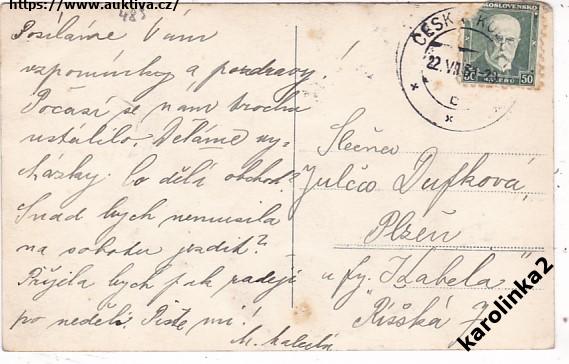 https://www.auktiva.cz/
485
Posíláme Vám
vzpomínky a pozdravy!
Počasí se nám trochu
ustálilo. Děláme vy-
cházky. Co dělá obchod?
Snad bych nemusila
na sobotu jezdit?
Přijela bych pak raději
po neděli. Pište mi!
M.
ČESK
22.VII
ČESKOSLOVENSKO
50 HALÉŘŮ 50
Slečna
Julča Dufková,
Plzeň
u fy. "Isabela"
Říšská 7
karolinka2